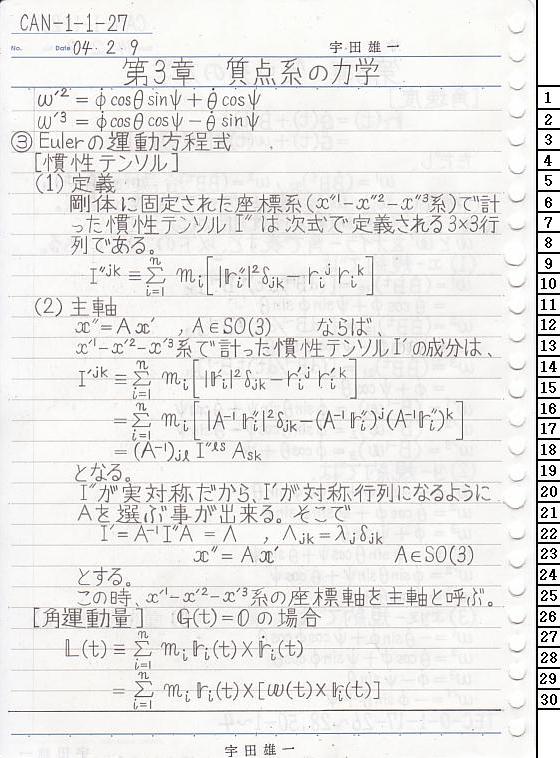 CAN-1-1-27
No. Date 04.2.9 宇田雄一
第3章 質点系の力学
ω'² = φ̇ cosθ sinψ + θ̇ cosψ
ω'³ = φ̇ cosθ cosψ − θ̇ sinψ
③ Eulerの運動方程式
[慣性テンソル]
(1) 定義
剛体に固定された座標系(x''¹−x''²−x''³系)で計
った慣性テンソル I'' は次式で定義される3×3行
列である。
I''ʲᵏ ≡ Σⁿᵢ₌₁ mᵢ[|𝕣''ᵢ|²δⱼₖ − r''ᵢʲ r''ᵢᵏ]
(2) 主軸
x'' = A x' , A∈SO(3) ならば、
x'¹−x'²−x'³系で計った慣性テンソル I' の成分は、
I'ʲᵏ ≡ Σⁿᵢ₌₁ mᵢ[|𝕣'ᵢ|²δⱼₖ − r'ᵢʲ r'ᵢᵏ]
= Σⁿᵢ₌₁ mᵢ[|A⁻¹𝕣''ᵢ|²δⱼₖ − (A⁻¹𝕣''ᵢ)ʲ(A⁻¹𝕣''ᵢ)ᵏ]
= (A⁻¹)ⱼₗ I''ˡˢ Aₛₖ
となる。
I''が実対称だから、I'が対称行列になるように
Aを選ぶ事が出来る。そこで
I' = A⁻¹I''A = Λ , Λⱼₖ = λⱼδⱼₖ
x'' = A x' A∈SO(3)
とする。
この時、x'¹−x'²−x'³系の座標軸を主軸と呼ぶ。
[角運動量] 𝔾(t) = 0 の場合
𝕃(t) ≡ Σⁿᵢ₌₁ mᵢ 𝕣ᵢ(t) × 𝕣̇ᵢ(t)
= Σⁿᵢ₌₁ mᵢ 𝕣ᵢ(t) × [ω(t) × 𝕣ᵢ(t)]
宇田雄一
1
2
3
4
5
6
7
8
9
10
11
12
13
14
15
16
17
18
19
20
21
22
23
24
25
26
27
28
29
30